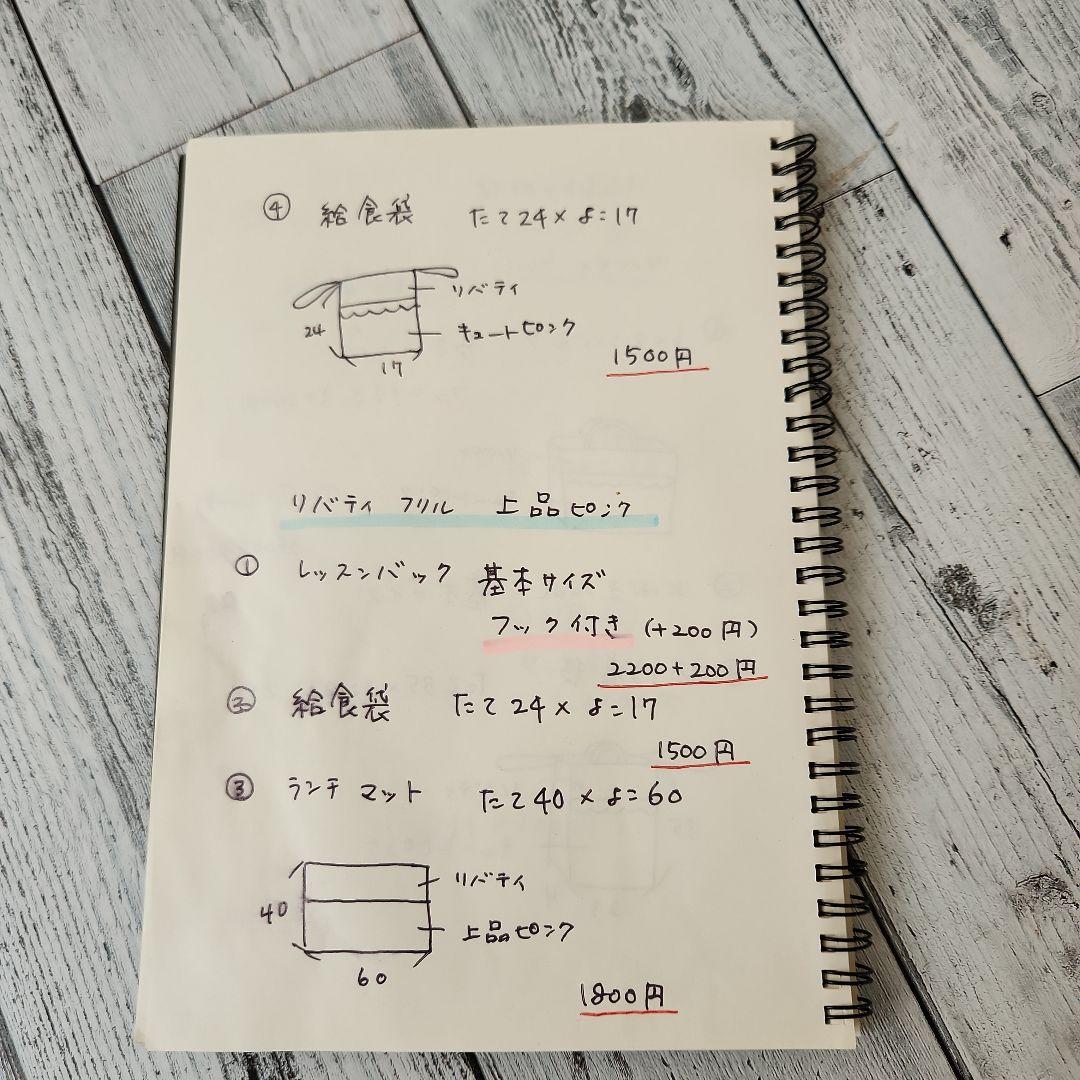 ④ 給食袋 たて24×よこ17
リバティ
24
キュートピンク
17
1500円
リバティ フリル 上品ピンク
① レッスンバック 基本サイズ
フック付き (+200円)
2200+200円
② 給食袋 たて24×よこ17
1500円
③ ランチマット たて40×よこ60
リバティ
40
上品ピンク
60
1800円